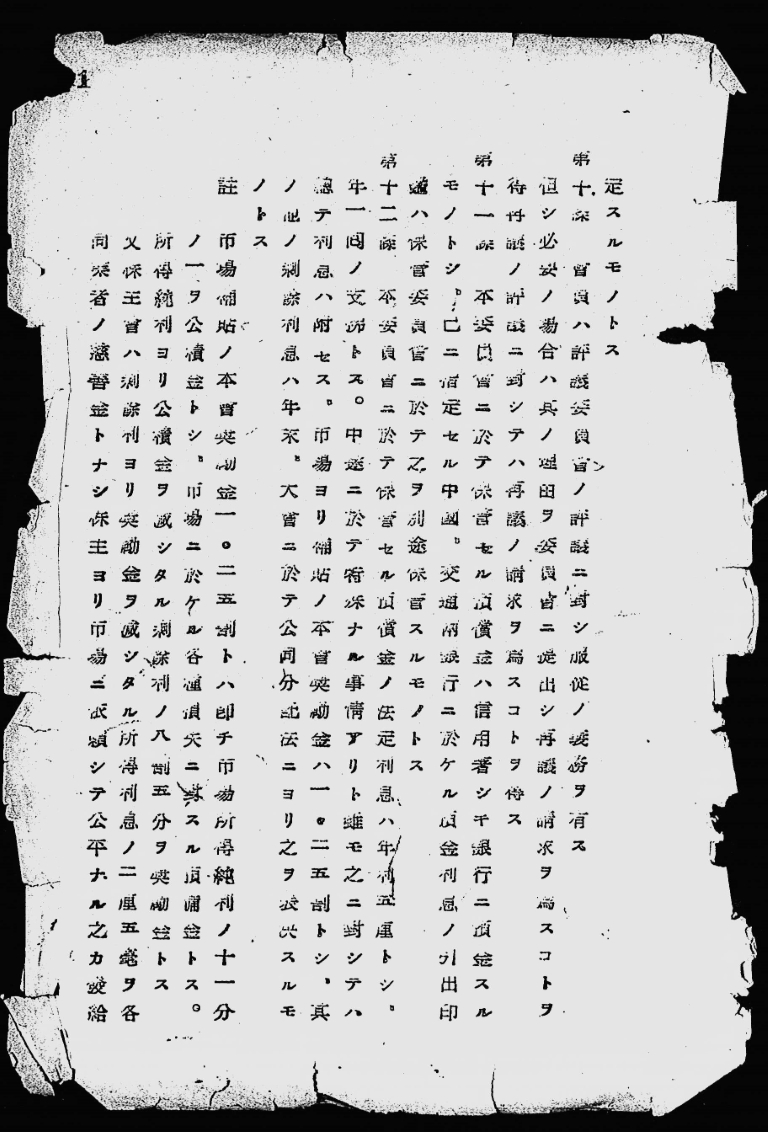 定スルモノトス
第十條 會員ハ評議委員會ノ評議ニ對シ服從ノ義務ヲ有ス
但シ必要ノ場合ハ其ノ理由ヲ委員會ニ提出シ再議ノ請求ヲ爲スコトヲ
得再議ノ評議ニ對シテハ再議ノ請求ヲ爲スコトヲ得ス
第十一條 本委員會ニ於テ保管セル預償金ハ信用著シキ銀行ニ預金スル
モノトシ。已ニ指定セル中國。交通兩銀行ニ於ケル預金利息ノ引出印
鑑ハ保管委員會ニ於テ之ヲ別途保管スルモノトス
第十二條 本委員會ニ於テ保管セル預償金ノ法定利息ハ年利五厘トシ。
年一回ノ支拂トス。中途ニ於テ特殊ナル事情アリト雖モ之ニ對シテハ
總テ利息ハ附セス。市場ヨリ補貼ノ本會奬勵金ハ一。二五割トシ、其
ノ他ノ剩餘利息ハ年末。大會ニ於テ公同分配法ニヨリ之ヲ表決スルモ
ノトス
註 市場補貼ノ本會奬勵金一。二五割トハ卽チ市場所得純利ノ十一分
ノ一ヲ公積金トシ。市場ニ於ケル各種損失ニ對スル預備金トス。
所得純利ヨリ公積金ヲ減シタル剩餘利ノ八割五分ヲ奬勵金トス
又保主會ハ剩餘利ヨリ奬勵金ヲ減シタル所得利息ノ二厘五毫ヲ各
同業者ノ慈善金トナシ保主ヨリ市場ニ依賴シテ公平ナル之カ發給